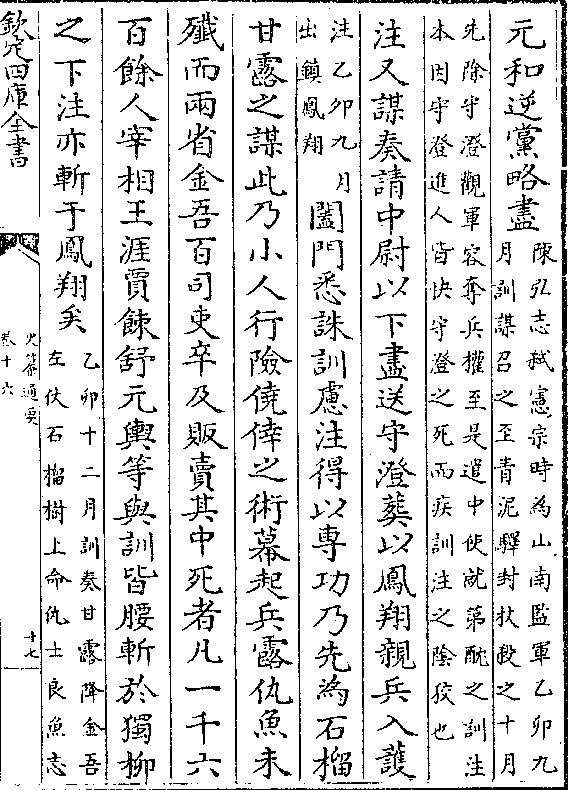 元和逆黨略盡陳弘志弑憲宗時為山南監軍乙卯九
月訓謀召之至青泥驛封杖殺之十月
先除守澄觀軍容奪兵權至是遣中使就第酖之訓注
本因守澄進人皆快守澄之死而疾訓注之陰狡也
注又謀奏請中尉以下盡送守澄葬以鳳翔親兵入䕶
注乙卯九月
出鎮鳳翔
闔門悉誅訓慮注得以專功乃先為石榴
甘露之謀此乃小人行險僥倖之術幕起兵露仇魚未
殲而兩省金吾百司吏卒及販賣其中死者凡一千六
百餘人宰相王涯賈餗舒元輿等與訓皆腰斬於獨柳
之下注亦斬于鳳翔矣乙卯十二月訓奏甘露降金吾
左仗石榴樹上命仇士良魚志
欽定四庫全書
史纂通要
卷十六
十七